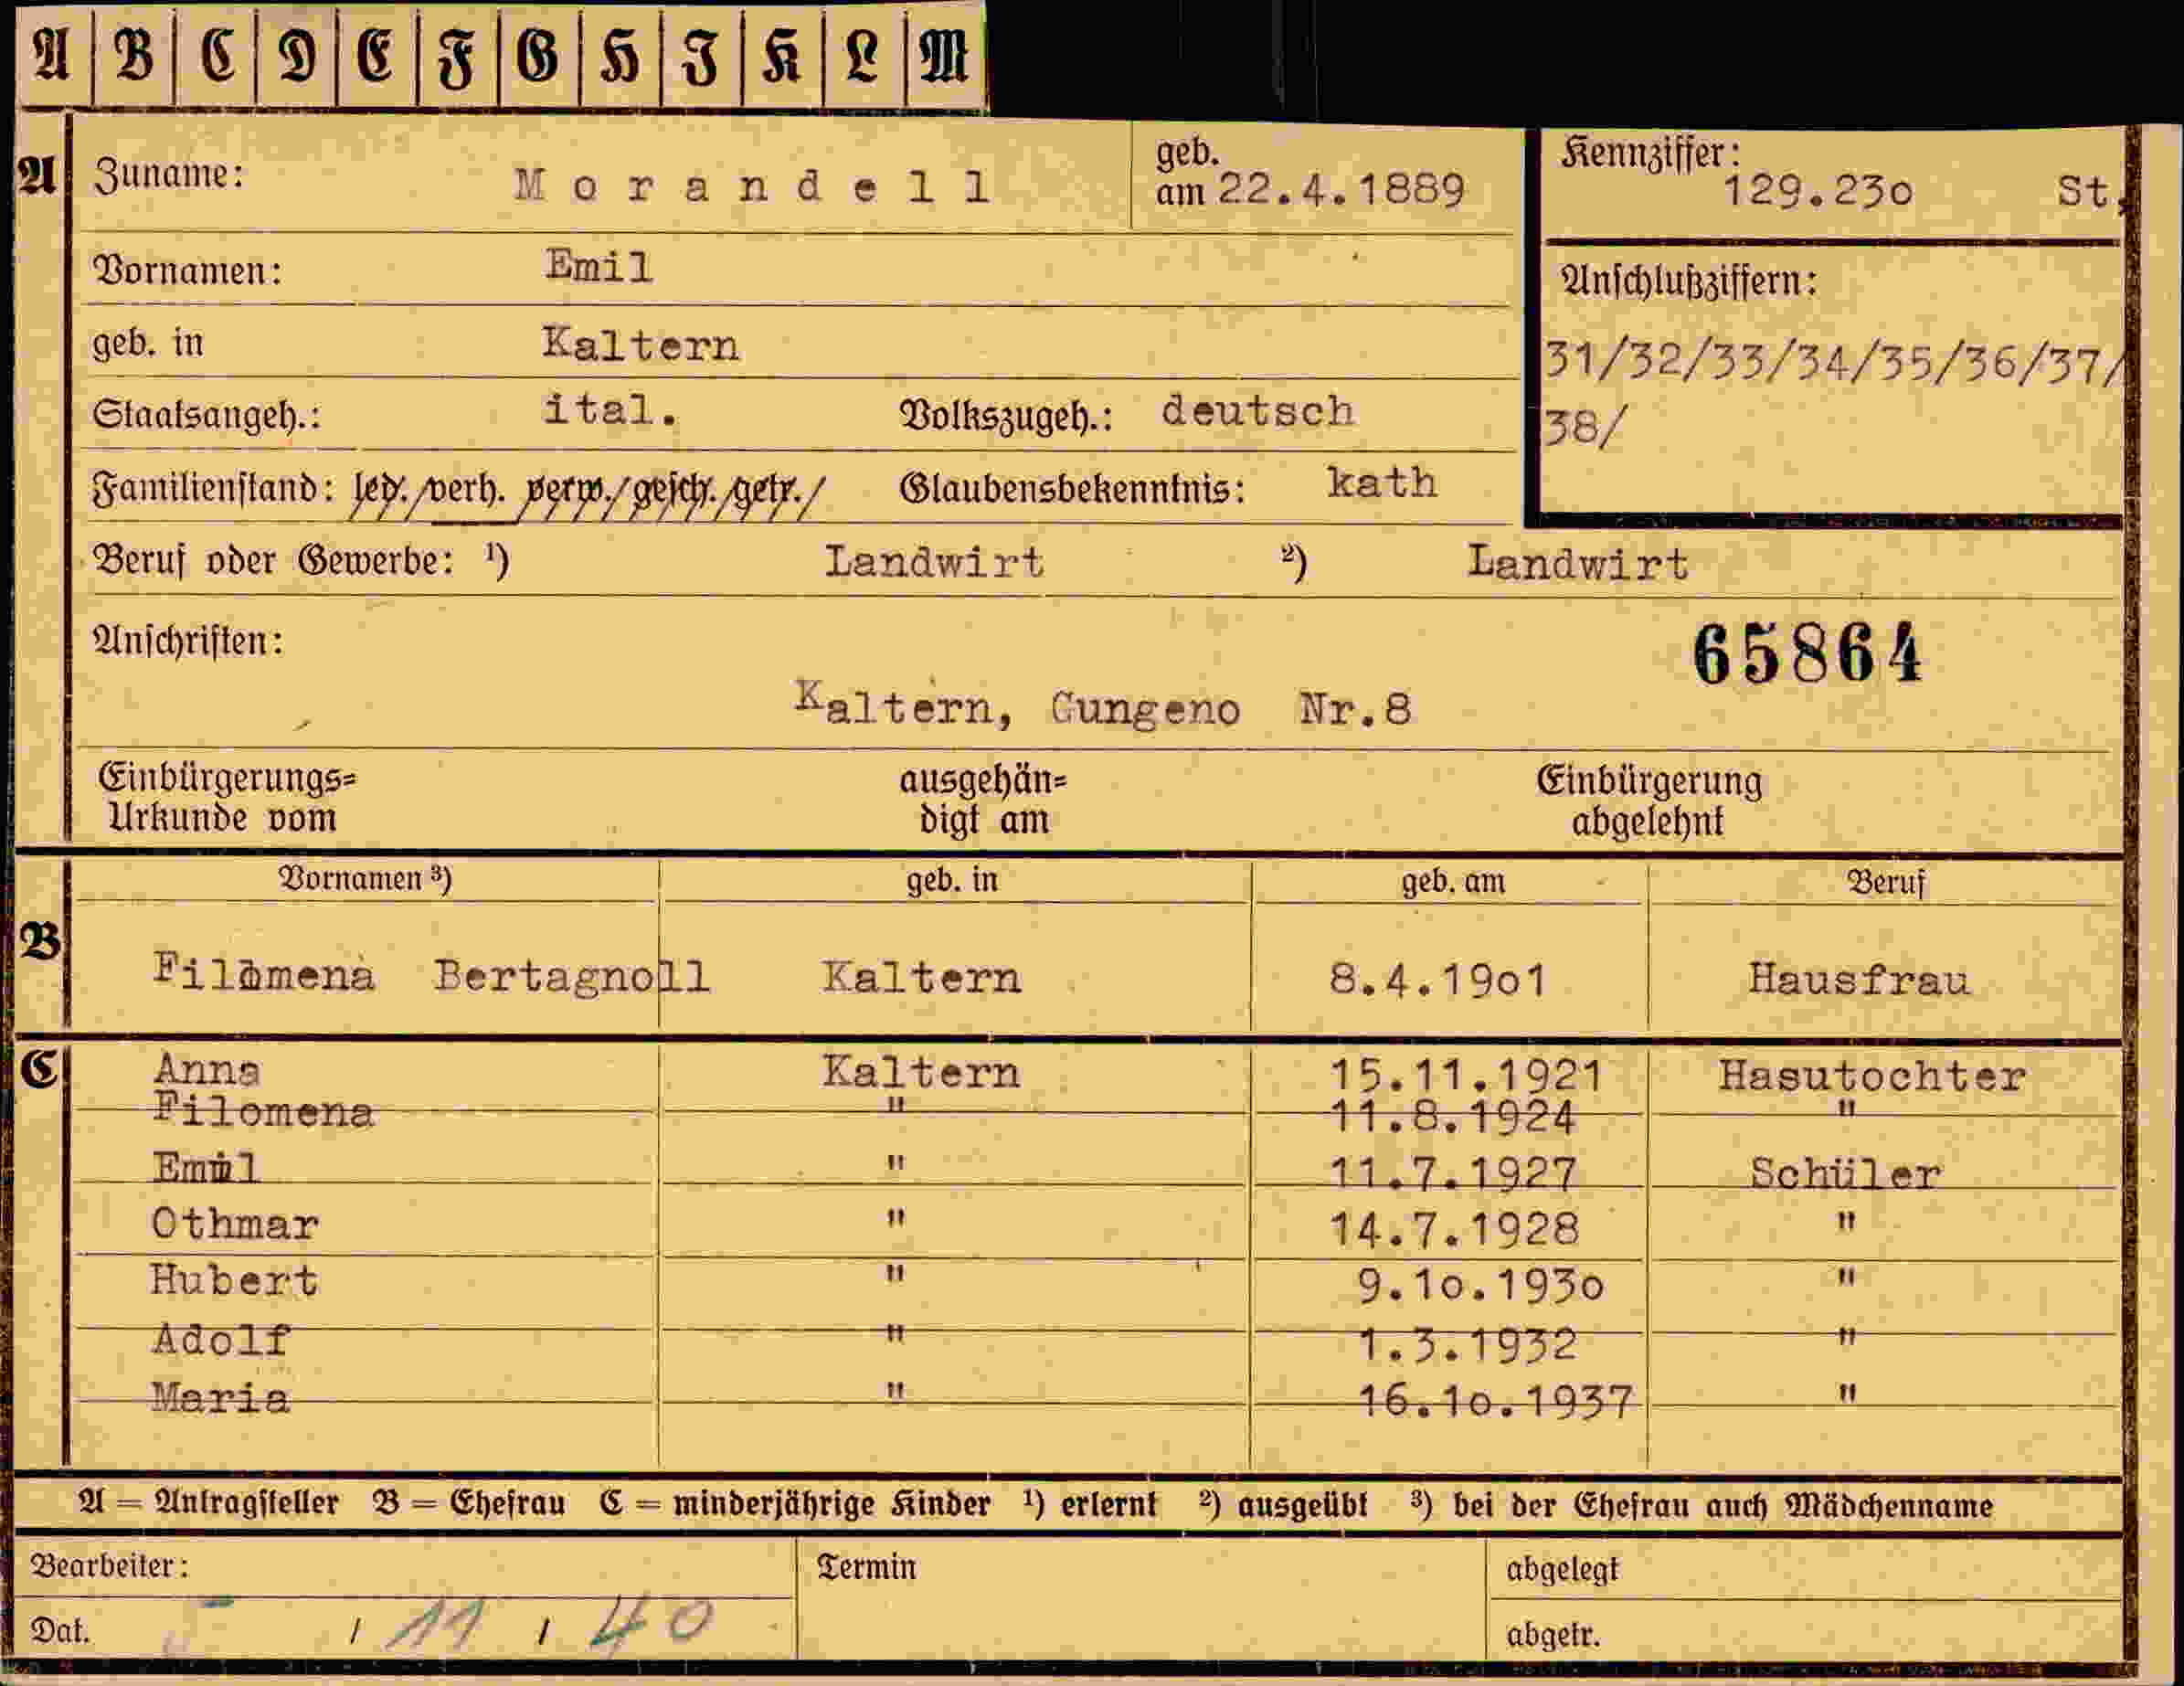 A B C D E F G H J K L M
A Zuname: Morandell geb. am 22.4.1889 Kennziffer: 129.230 St.
Vornamen: Emil
geb. in Kaltern
Anschlußziffern:
31/32/33/34/35/36/37/
38/
Staatsangeh.: ital. Volkszugeh.: deutsch
Familienstand: led./verh. verw./gesch./getr./ Glaubensbekenntnis: kath
Beruf oder Gewerbe: ¹) Landwirt ²) Landwirt
Anschriften: 65864
Kaltern, Gungeno Nr.8
Einbürgerungs= ausgehän= Einbürgerung
Urkunde vom digt am abgelehnt
Vornamen ³) geb. in geb. am Beruf
B Filomena Bertagnoll Kaltern 8.4.1901 Hausfrau
C Anna Kaltern 15.11.1921 Hasutochter
Filomena " 11.8.1924 "
Emil " 11.7.1927 Schüler
Othmar " 14.7.1928 "
Hubert " 9.10.1930 "
Adolf " 1.3.1932 "
Maria " 16.10.1937 "
A = Antragsteller B = Ehefrau C = minderjährige Kinder ¹) erlernt ²) ausgeübt ³) bei der Ehefrau auch Mädchenname
Bearbeiter: Termin abgelegt
Dat. 5 / 11 / 40 abgetr.